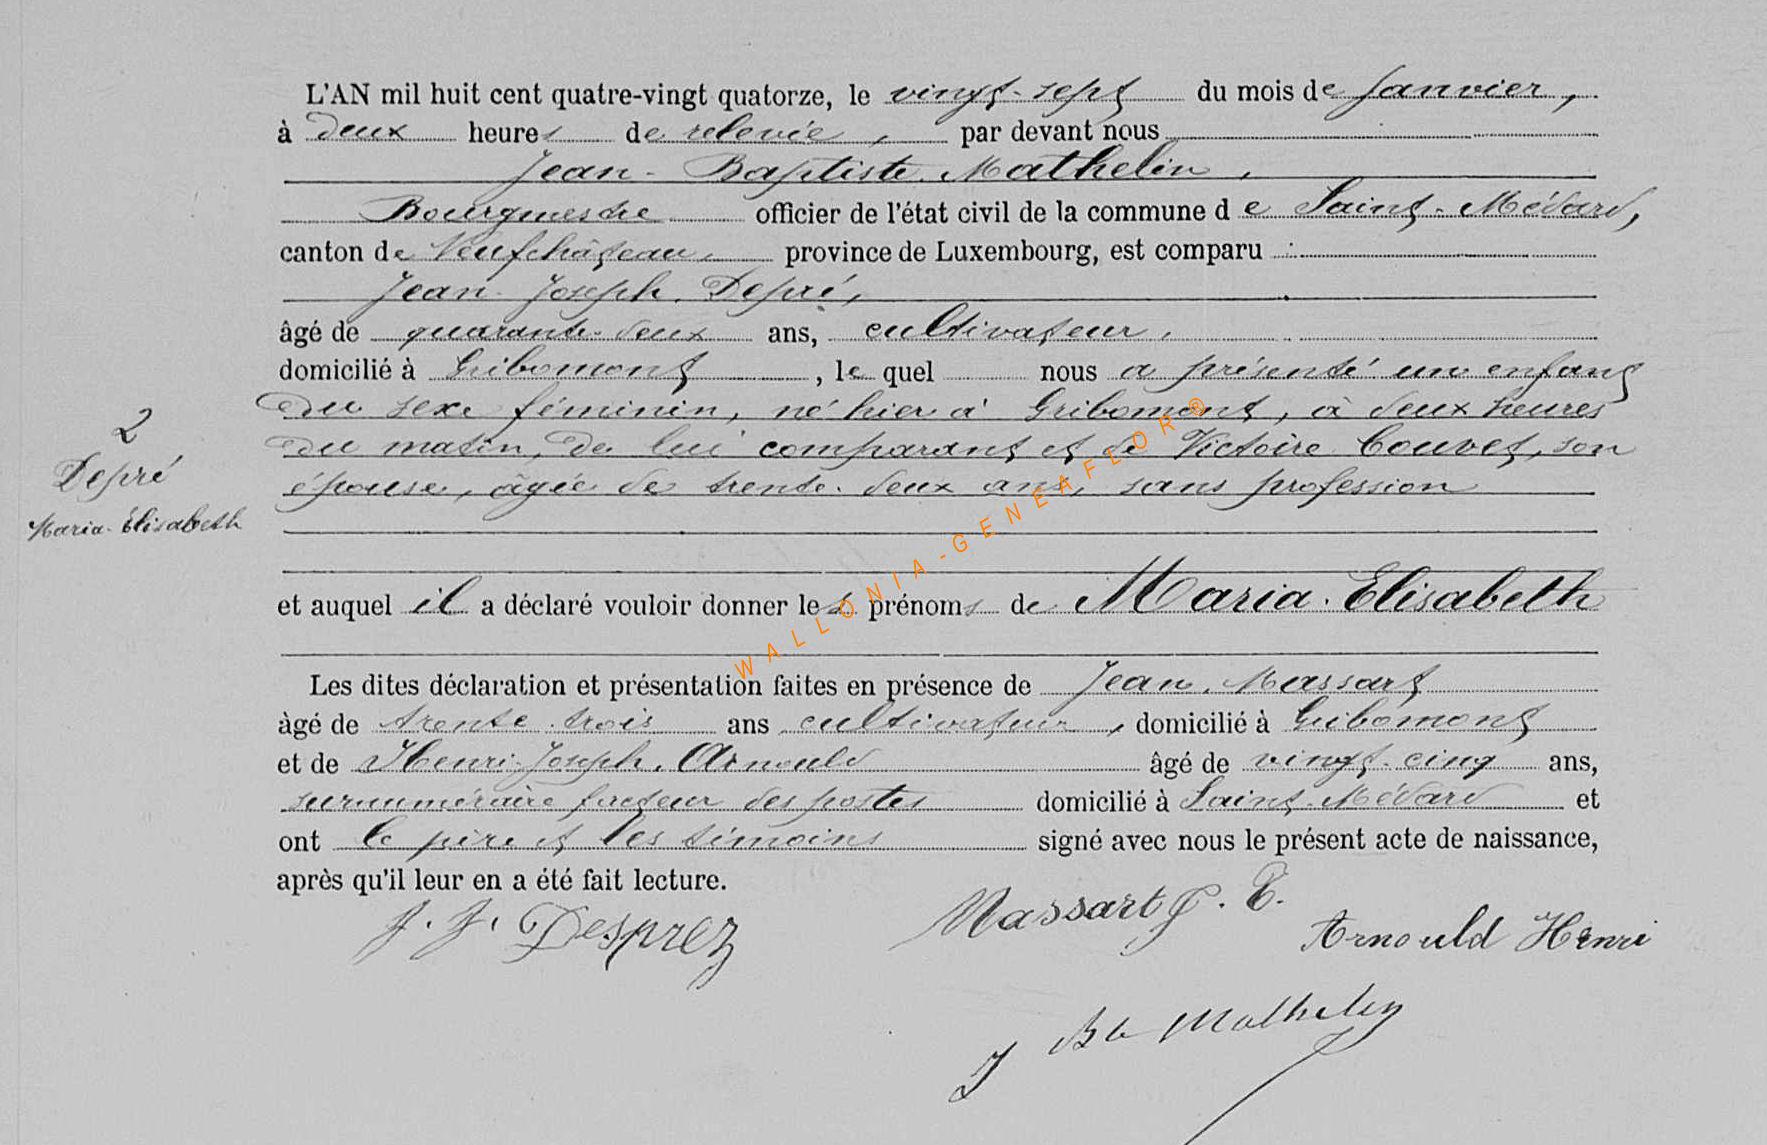 L'AN mil huit cent quatre-vingt quatorze, le vingt-sept du mois de Janvier,
à deux heures de relevée, par devant nous
Jean-Baptiste Mathelin,
Bourgmestre officier de l'état civil de la commune de Saint-Médard,
canton de Neufchâteau, province de Luxembourg, est comparu :
Jean-Joseph Depré,
âgé de quarante-deux ans, cultivateur,
domicilié à Gribomont, le quel nous a présenté un enfant
du sexe féminin, né hier à Gribomont, à deux heures
du matin, de lui comparant et de Victoire Couvet, son
épouse, âgée de trente-deux ans, sans profession
2
Depré
Maria-Élisabeth
et auquel il a déclaré vouloir donner les prénoms de Maria-Elisabeth
Les dites déclaration et présentation faites en présence de Jean Massart
âgé de trente-trois ans cultivateur, domicilié à Gribomont
et de Henri-Joseph Arnould âgé de vingt-cinq ans,
surnuméraire facteur des postes domicilié à Saint-Médard et
ont le père et les témoins signé avec nous le présent acte de naissance,
après qu'il leur en a été fait lecture.
J. J. Desprez
Massart J. E.
Arnould Henri
J Bte Mathelin
WALLONIA-GENEAFLOR®